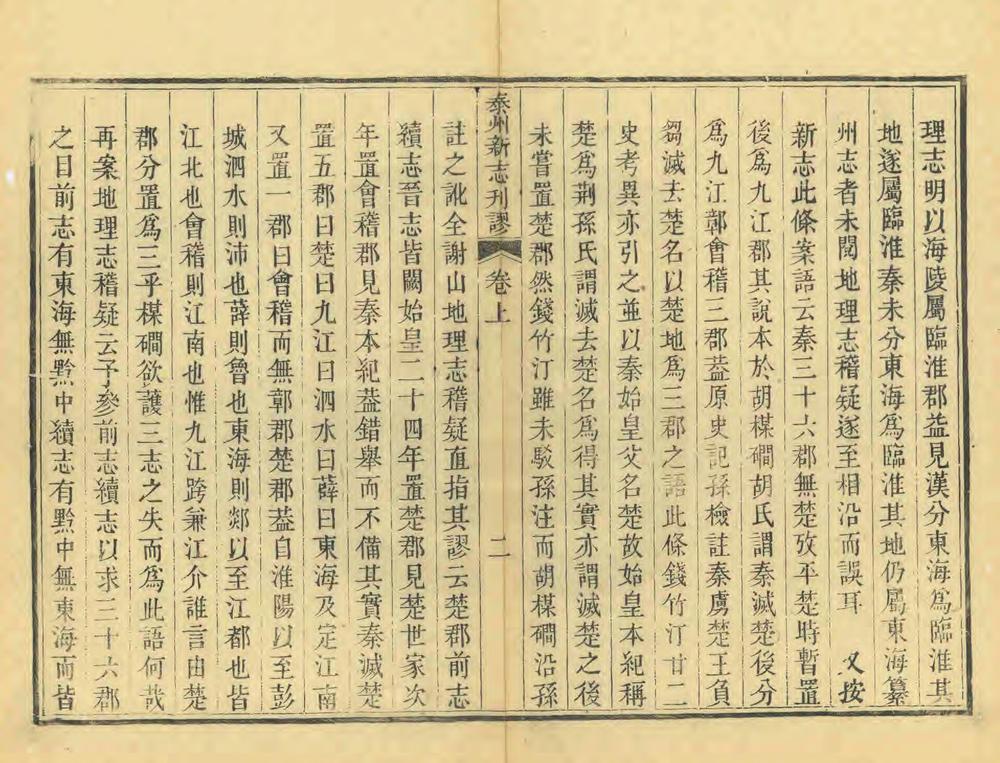 理志明以海陵屬臨淮郡益見漢分東海爲臨淮其
地遂屬臨淮秦未分東海爲臨淮其地仍屬東海纂
州志者未閱地理志稽疑遂至相沿而誤耳 又按
新志此條案語云秦三十六郡無楚攷平楚時暫置
後爲九江郡其說本於胡楳磵胡氏謂秦滅楚後分
爲九江鄣會稽三郡葢原史記孫檢註秦虜楚王負
芻滅去楚名以楚地爲三郡之語此條錢竹汀廿二
史考異亦引之並以秦始皇父名楚故始皇本紀稱
楚爲荆孫氏謂滅去楚名爲得其實亦謂滅楚之後
未嘗置楚郡然錢竹汀雖未駁孫注而胡楳磵沿孫
泰州新志刊謬 卷上 二
註之訛全謝山地理志稽疑直指其謬云楚郡前志
續志晉志皆闕始皇二十四年置楚郡見楚世家次
年置會稽郡見秦本紀葢錯舉而不備其實秦滅楚
置五郡曰楚曰九江曰泗水曰薛曰東海及定江南
又置一郡曰會稽而無鄣郡楚郡葢自淮陽以至彭
城泗水則沛也薛則魯也東海則郯以至江都也皆
江北也會稽則江南也惟九江跨兼江介誰言由楚
郡分置爲三乎楳磵欲護三志之失而爲此語何哉
再案地理志稽疑云予參前志續志以求三十六郡
之目前志有東海無黔中續志有黔中無東海而皆